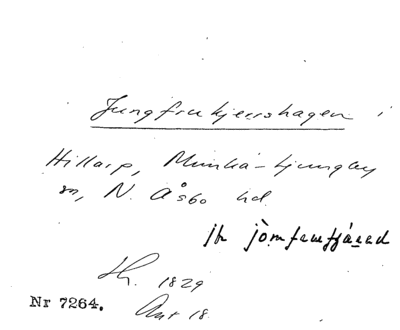 Jungfrukjerrshagen i
Hillarp, Munka-Ljungby
sn, N. Åsbo hd.
jfr jòmfrufjáeed
Th. 1829
Nr 7264. Ant 18.